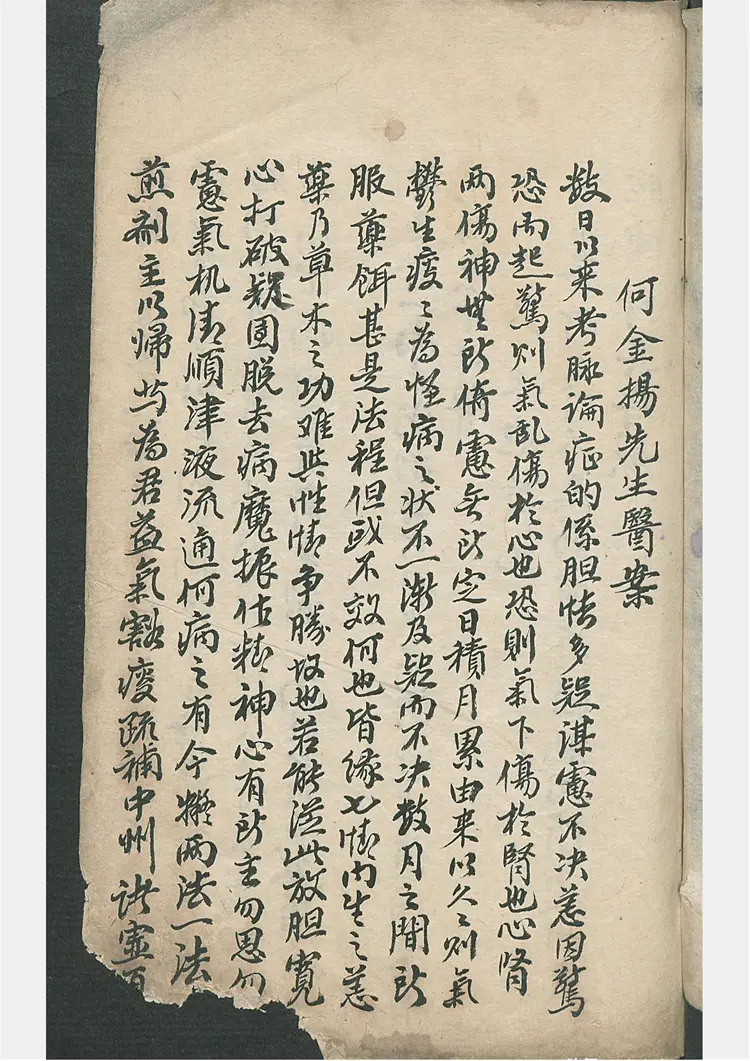 何金揚先生醫案
數日以来考脉論症的係胆怯多疑謀慮不决恙因驚
恐而起驚則氣乱傷於心也恐則氣下傷於腎也心腎
两傷神無所倚慮無所定日積月累由来以久久則氣
鬱生痰痰為怪病之状不一漸及疑而不决数月之間所
服藥餌甚是法程但或不效何也皆緣七情内生之恙
藥乃草木之功难與性情争勝故也若能從此放胆寬
心打破疑团脱去病魔振作精神心有所主勿思勿
慮氣机清順津液流通何病之有今擬两法一法
煎剂主以帰芍為君益氣豁痰疏補中州